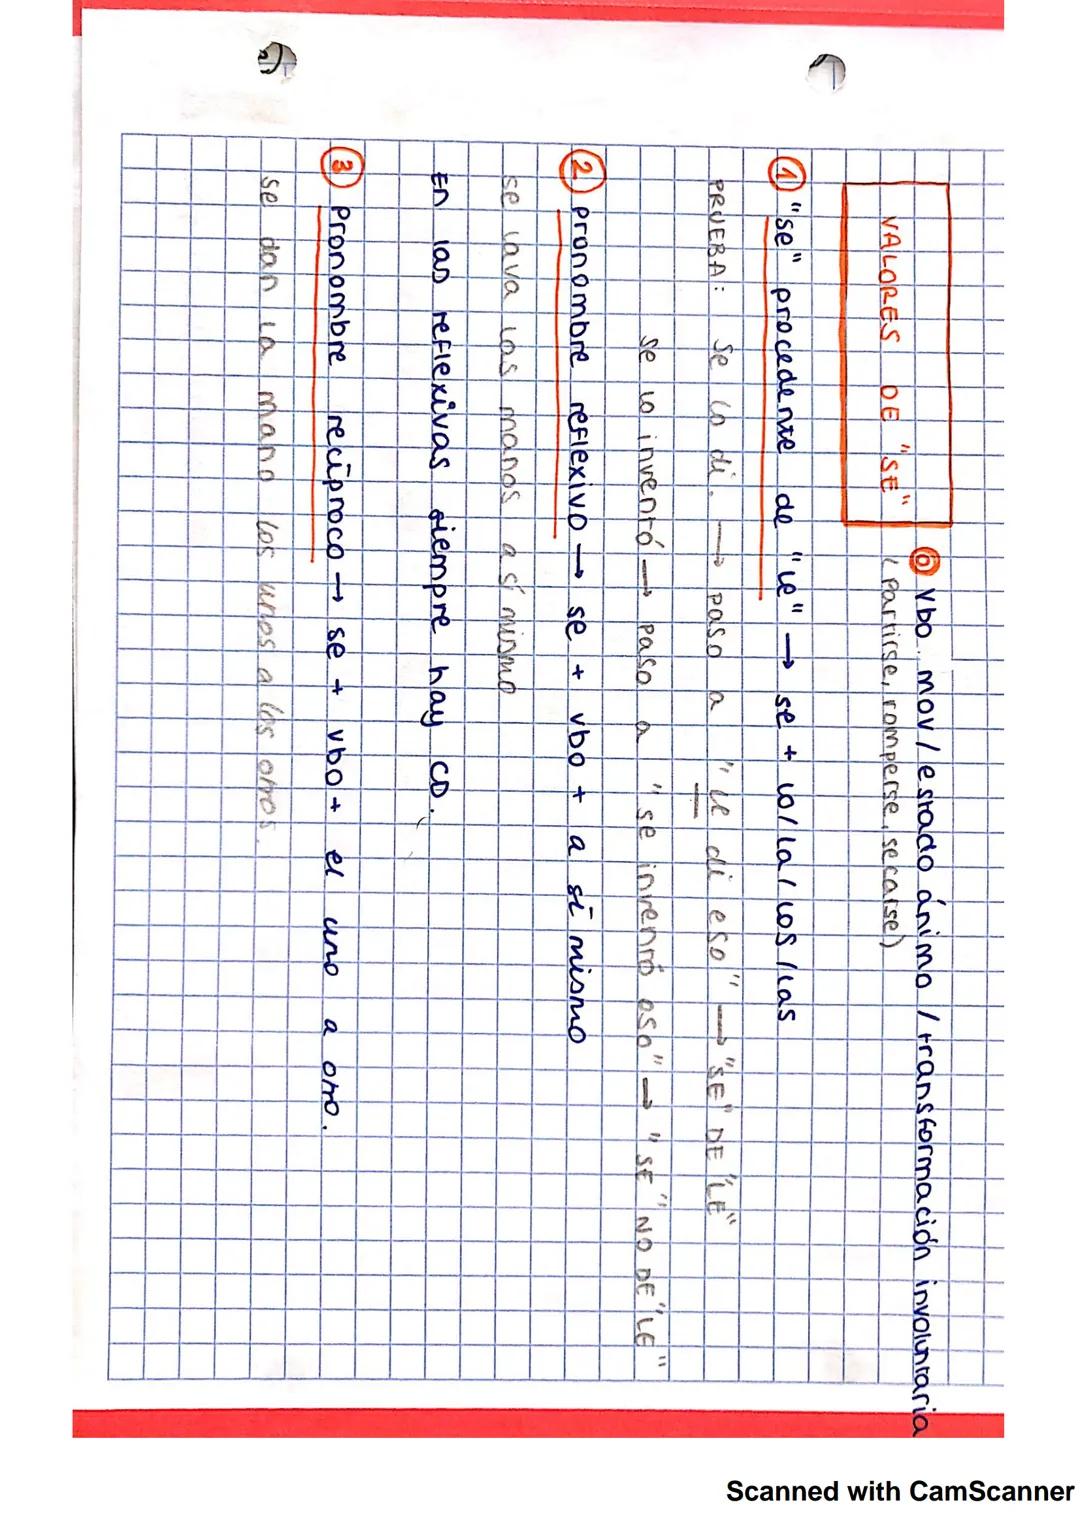 VALORES DE "SE"
⓪ Vbo mov/estado ánimo / transformación involuntaria
(Partirse, romperse, secarse)
① "se" procedente de "le" → se + lo/la/los/las
PRUEBA: Se lo di. → paso a "le di eso" → "SE" DE "LE"
Se lo inventó → paso a "se inventó eso" → "SE" NO DE "LE"
② Pronombre reflexivo → se + vbo + a sí mismo
se lava las manos a sí mismo
En las reflexivas siempre hay CD.
③ Pronombre recíproco → se + vbo + el uno a otro.
se dan la mano los unos a los otros.
Scanned with CamScanner